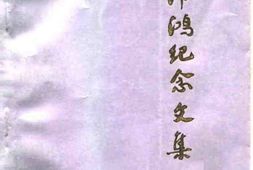 鸿纪念文集